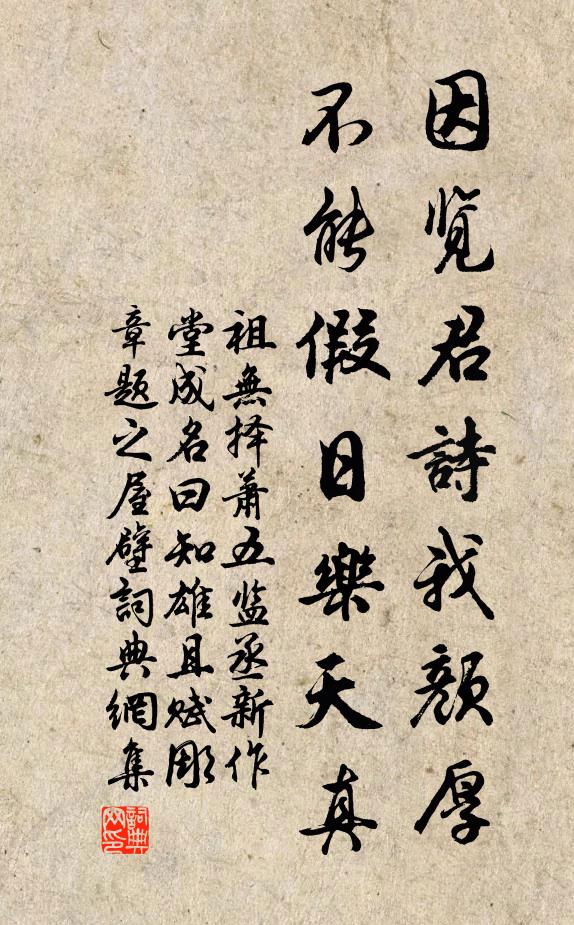 因览君詩我顔厚
不能假日樂天真
祖無择蕭五监丞新作
堂成名曰知雄且赋彫
章題之屋壁詞典網集
詞典网印